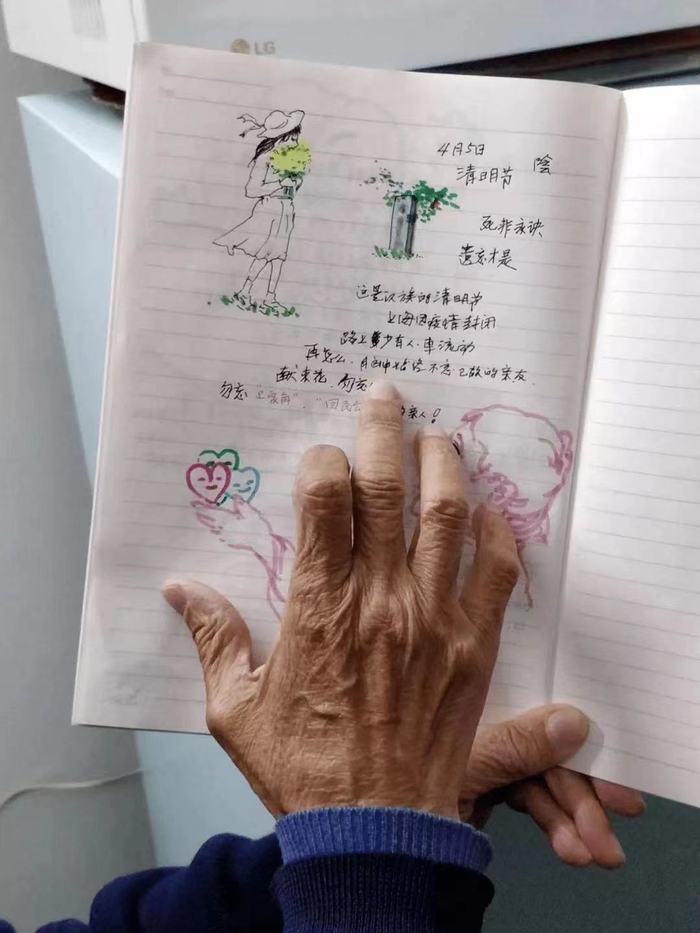 LG
4月5日
清明节 陰
死非永诀
遗忘才是
这是汉族的清明节
上海因疫情封闭
路上少有人.车流动
再怎么.自己 不忘已故的亲友.
献束花.勿忘
勿忘 "
"回民 亲人!